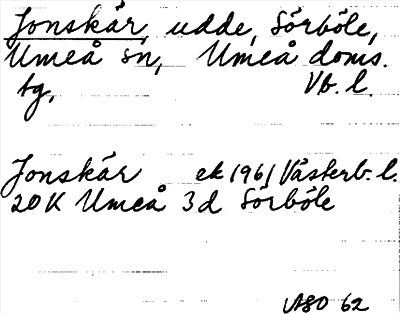 Jonskär, udde, Sörböle,
Umeå sn, Umeå doms.
tg, Vb. l.
Jonskär ek 1961 Västerb. l.
20K Umeå 3d Sörböle
ASO 62